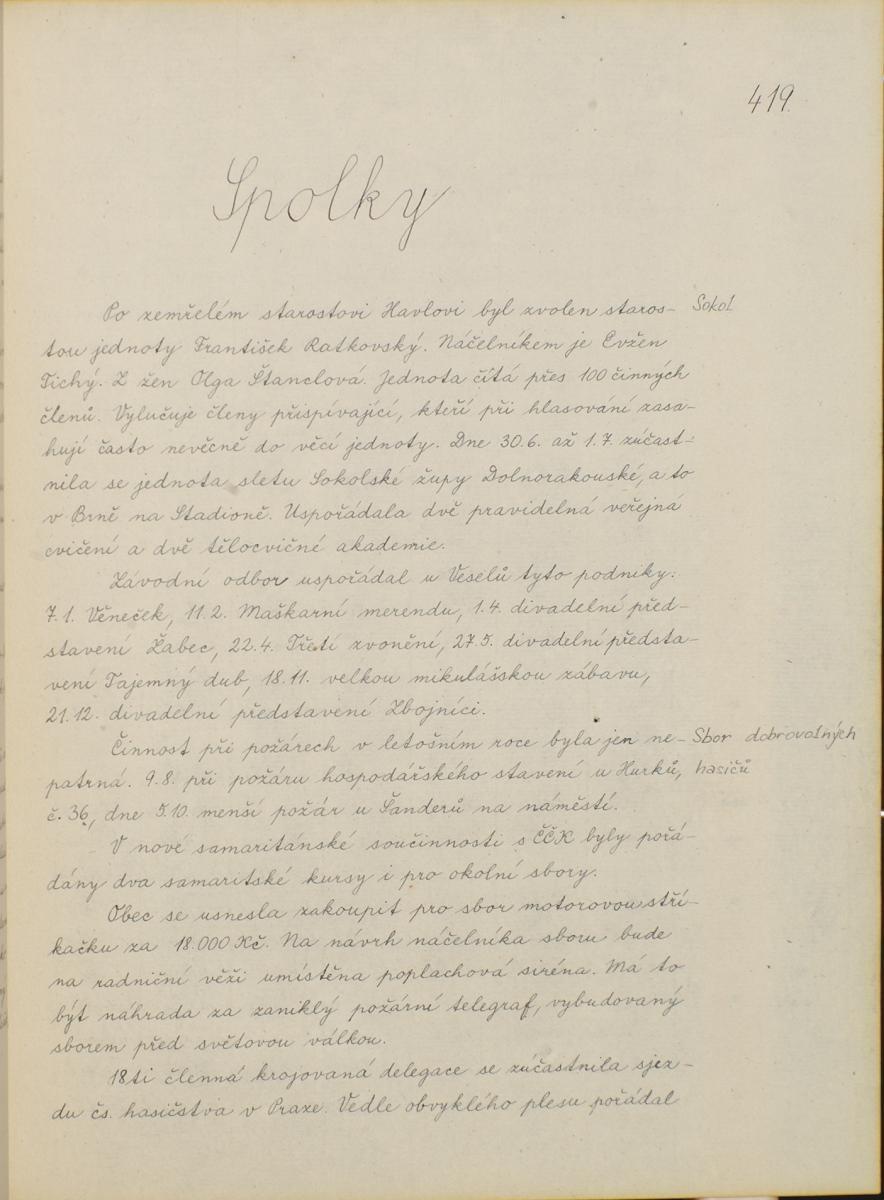 419.
Spolky
Po zemřelém starostovi Havlovi byl zvolen staros- Sokol
tou jednoty František Ratkovský. Náčelníkem je Evžen
Tichý. Z žen Olga Štanclová. Jednota čítá přes 100 činných
členů. Vylučuje členy přispívající, kteří při hlasování zasa-
hují často nevěcně do věcí jednoty. Dne 30.6. až 1.7. zúčast-
nila se jednota sletu Sokolské župy Dolnorakouské, a to
v Brně na Stadioně. Uspořádala dvě pravidelná veřejná
cvičení a dvě tělocvičné akademie.
Závodní odbor uspořádal u Veselů tyto podniky:
7.1. Věneček, 11.2. Maškarní merendu, 1.4. divadelní před-
stavení Žabec, 22.4. Třetí zvonění, 27.5. divadelní představ-
vení Tajemný dub, 18.11. velkou mikulášskou zábavu,
21.12. divadelní představení Zbojníci.
Činnost při požárech v letošním roce byla jen ne- Sbor dobrovolných
patrná. 9.8. při požáru hospodářského stavení u Hurků, hasičů
č. 36, dne 5.10. menší požár u Šanderů na náměstí.
V nové samaritánské součinnosti s ČČK byly pořá-
dány dva samaritské kursy i pro okolní sbory.
Obec se usnesla zakoupit pro sbor motorovou stří-
kačku za 18.000 Kč. Na návrh náčelníka sboru bude
na radniční věži umístěna poplachová siréna. Má to
být náhrada za zaniklý požární telegraf, vybudovaný
sborem před světovou válkou.
18ti členná krojovaná delegace se zúčastnila sjez-
du čs. hasičstva v Praze. Vedle obvyklého plesu pořádal